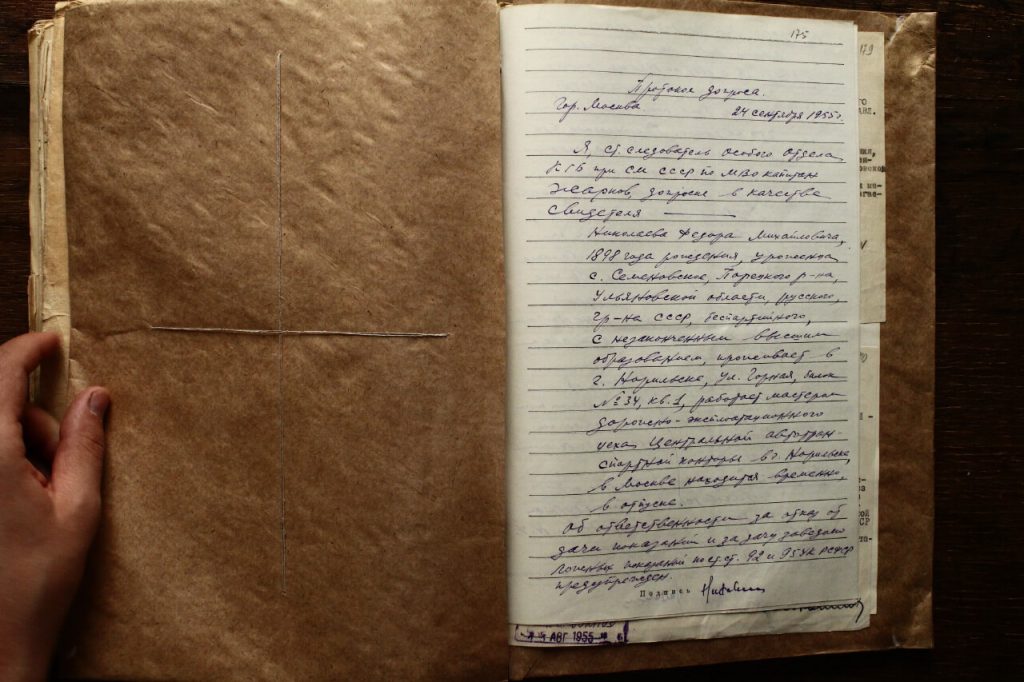 175
Протокол допроса.
Гор. Москва 24 сентября 1955 г.
Я, ст. следователь особого отдела
КГБ при СМ СССР по МВО капитан
допросил в качестве
свидетеля
Николаева Федора Михайловича,
1898 года рождения, уроженца
с. Семеновское, Порецкого р-на,
Ульяновской области, русского,
гр-на СССР, беспартийного,
с незаконченным высшим
образованием, проживает в
г. Норильске, ул. Горная, дом
№ 34, кв. 1, работает мастером
дорожно-эксплоатационного
цеха Центральной автотран-
спортной конторы в г. Норильске,
в Москве находится временно,
в отпуске.
Об ответственности за отказ от
дачи показаний и за дачу заведомо
ложных показаний по ст. ст. 92 и 95 УК РСФСР
предупрежден.
Подпись
АВГ 1955
179